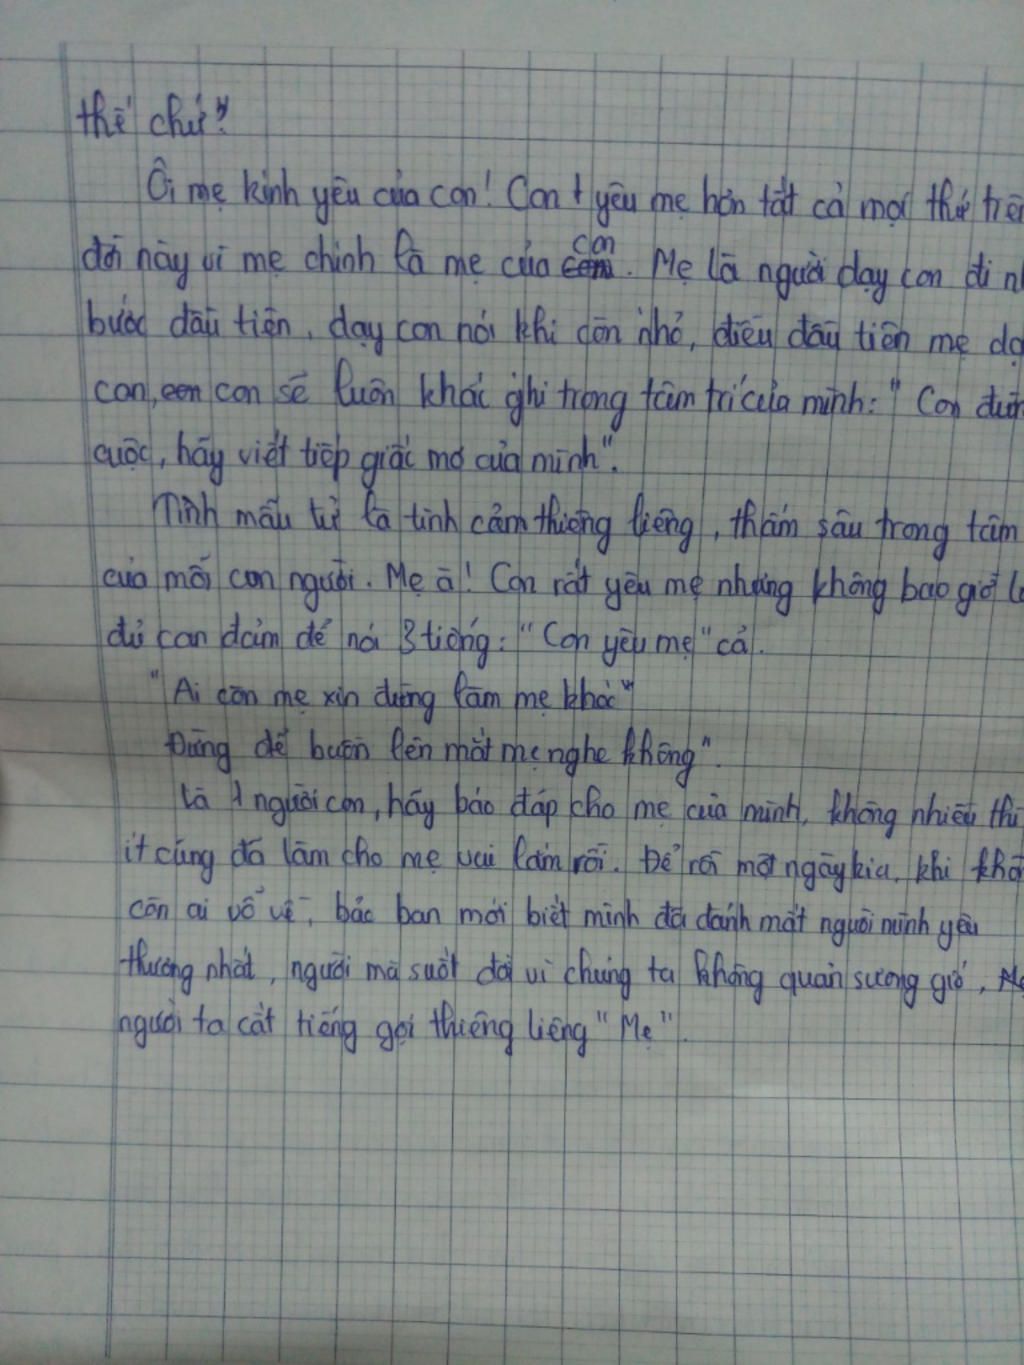 thế chứ"?
Ôi mẹ kính yêu của con! Con yêu mẹ hơn tất cả mọi thứ trên
đời này vì mẹ chính là mẹ của con. Mẹ là người dạy con đi
bước đầu tiên, dạy con nói khi còn nhỏ, điều đầu tiên mẹ dạ
con, con sẽ luôn khắc ghi trong tâm trí của mình: " Con
cuộc, hãy viết tiếp giấc mơ của mình".
Tình mẫu tử là tình cảm thiêng liêng, thấm sâu trong tâm
của mỗi con người. Mẹ à! Con rất yêu mẹ nhưng không bao giờ
đủ can đảm để nói 3 tiếng: "Con yêu mẹ" cả.
"Ai còn mẹ xin đừng làm mẹ khóc"
Đừng để buồn lên mắt mẹ nghe không".
Là 1 người con, hãy báo đáp cho mẹ của mình, không nhiều thì
ít cũng đã làm cho mẹ vui lắm rồi. Để rồi một ngày kia, khi
còn ai vỗ về, bác bạn mới biết mình đã đánh mất người mình yêu
thương nhất, người mà suốt đời vì chúng ta không quản sương gió,
người ta cất tiếng gọi thiêng liêng "Mẹ".